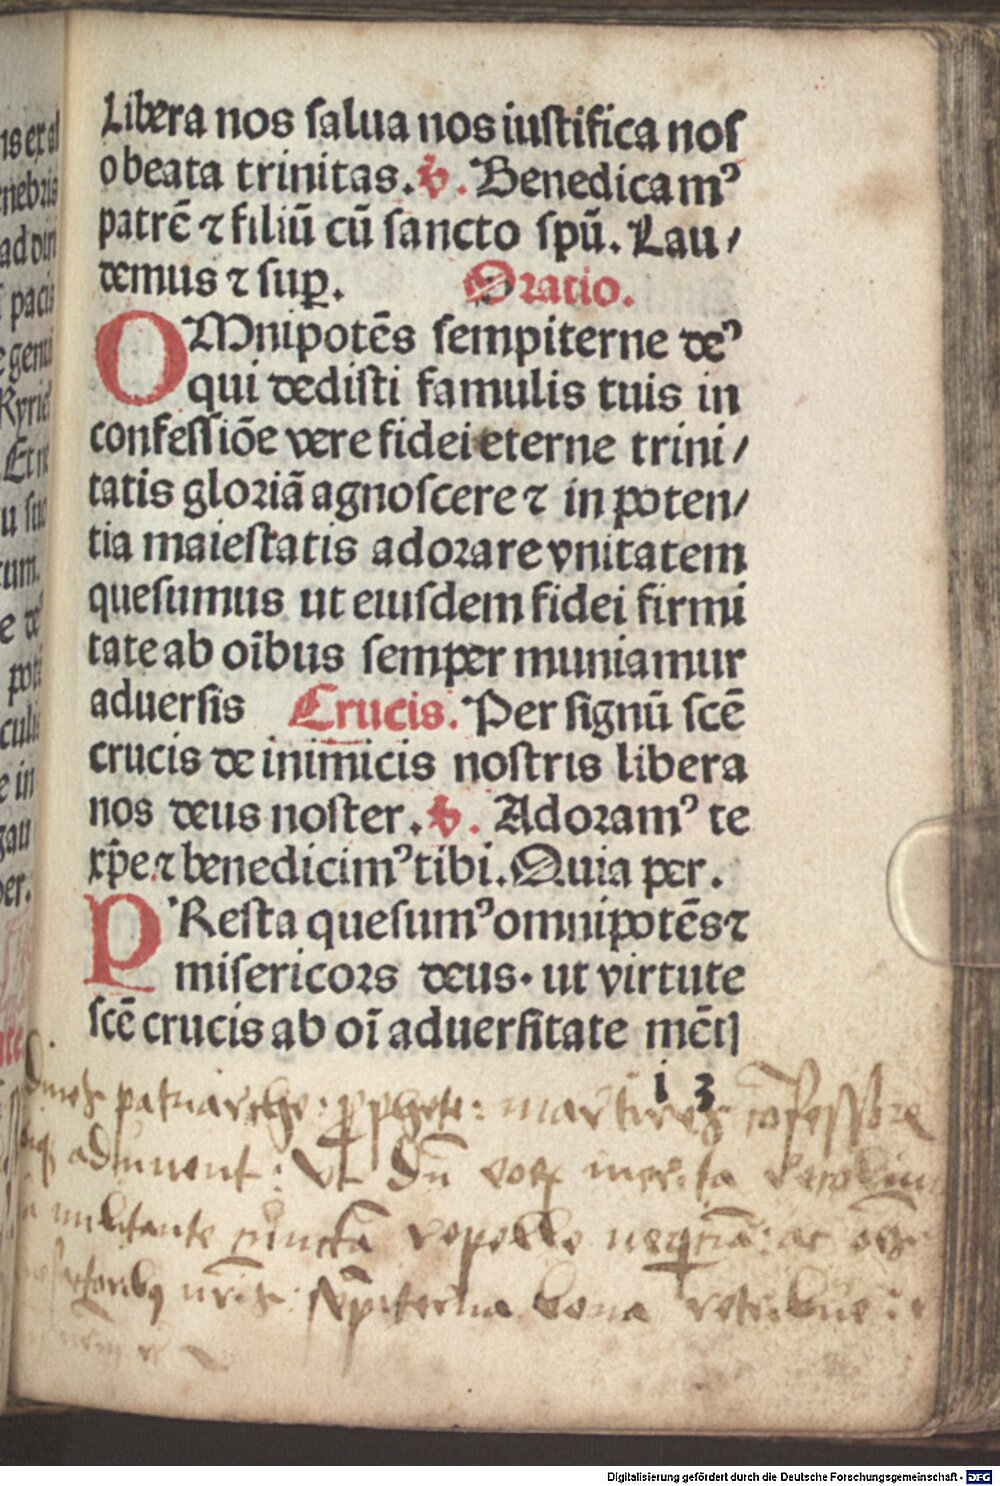 Libera nos ſalua nos iuſtifica noſ
o beata trinitas. ℣. Benedicamꝰ
patrē ⁊ filiū cū ſancto ſpū. Lau/
demus ⁊ ſuꝑ. Oratio.
OMnipotēs ſempiterne deꝰ
qui dediſti famulis tuis in
confeſſiōe vere fidei eterne trini/
tatis gloꝛiā agnoſcere ⁊ in poten/
tia maieſtatis adoꝛare vnitatem
queſumus ut eiuſdem fidei firmi
tate ab oībus ſemper muniamur
aduerſis Crucis. Per ſignū ſcē
crucis de inimicis noſtris libera
nos deus noſter. ℣. Adoꝛamꝰ te
xp̄e ⁊ benedicimꝰ tibi. Quia per.
PReſta queſumꝰ omnipotēs ⁊
miſericoꝛs deus. ut virtute
ſcē crucis ab oī aduerſitate mētꝭ
i 3
patriarche: ꝓphete: martires cōfeſſore
adiuuent: Ut Dū merita
militante cuncta repelle neq̄ciā: ac
ſēpiterna bona retribue: